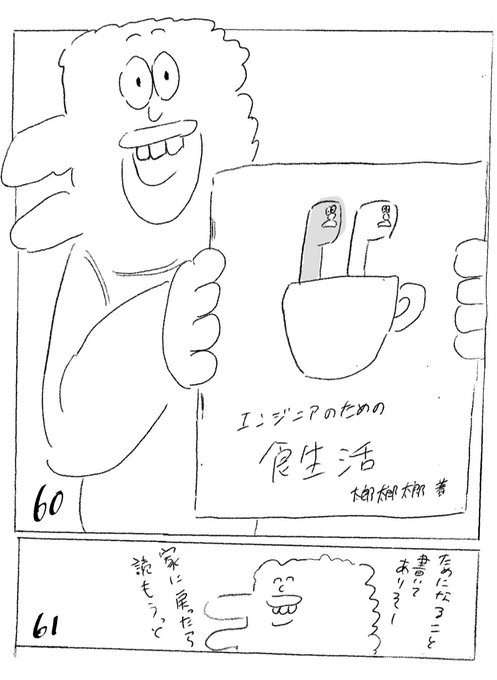 エンジニアのための
食生活
太郎太郎太郎 著
60
ためになること
書いて
ありそー
家に戻ったら
読もうっと
61